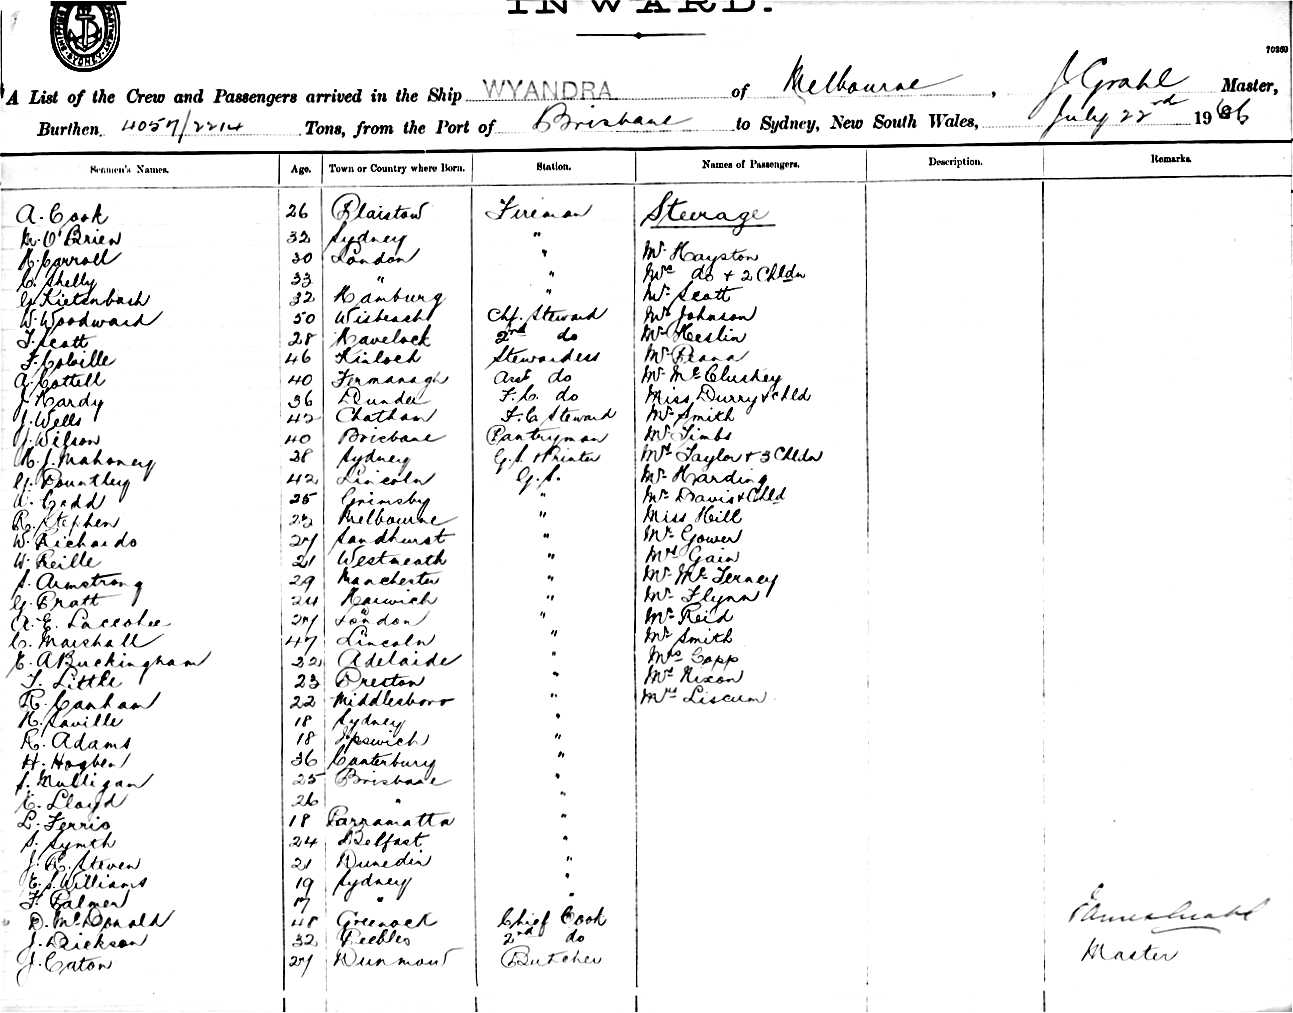 INWARD.
70359
A List of the Crew and Passengers arrived in the Ship WYANDRA of Melbourne, J Grahl Master,
Burthen 4057/2214 Tons, from the Port of Brisbane to Sydney, New South Wales, July 22nd 1906
Seamen's Names. Age. Town or Country where Born. Station. Names of Passengers. Description. Remarks.
A. Cook 26 Plaistow Fireman Steerage
M. O'Brien 32 Sydney "
R. Carroll 30 London " Mr Hayston
C. Shelly 33 " " Mrs do + 2 Chldn
G. Kietenbach 32 Hamburg " Mr Scott
W. Woodward 50 Wisbeach Chf. Steward Mr Johnson
T. Scott 28 Havelock 2nd do Mr Heslin
F. Colville 46 Kinloch Stewardess Mr Reana
A. Cottell 40 Fermanagh Asst do Mr McCluskey
J. Hardy 36 Dundee F.C. do Miss Durry & chld
J. Wells 42 Chatham F.C. Steward Mr Smith
J. Wilson 40 Brisbane Pantryman Mr Timbs
R. J. Mahoney 28 Sydney G.S. & Printer Mrs Taylor + 3 Chldn
G. Pountley 42 Lincoln G.S. Mr Harding
A. Gedd 35 Grimsby " Mrs Davis & Chld
R. Stephen 23 Melbourne " Miss Hill
W. Richards 27 Sandhurst " Mr Gower
W. Reille 21 Westmeath " Mrs Gain
S. Armstrong 29 Manchester " Mr McTerney
G. Pratt 24 Harwich " Mr Flynn
A. E. 27 London " Mr Reid
C. Marshall 47 Lincoln " Mr Smith
E. A Buckingham 22 Adelaide " Mrs Capp
T. Little 23 Preston " Mrs Nixon
R. Canham 22 Middlesboro " Mrs Liscum
H. Saville 18 Sydney "
R. Adams 18 Ipswich "
H. Hogben 36 Canterbury "
S. Mulligan 25 Brisbane "
E. Lloyd 26 " "
L. Ferris 18 Parramatta "
S. Symth 24 Belfast "
J. R. Steven 21 Dunedin "
E. S. Williams 19 Sydney "
F. Palmer 17 " "
D. McDonald 48 Greenock Chief Cook James Grahl
J. Dickson 32 Peebles 2nd do
J. Caton 27 Dunmow Butcher Master